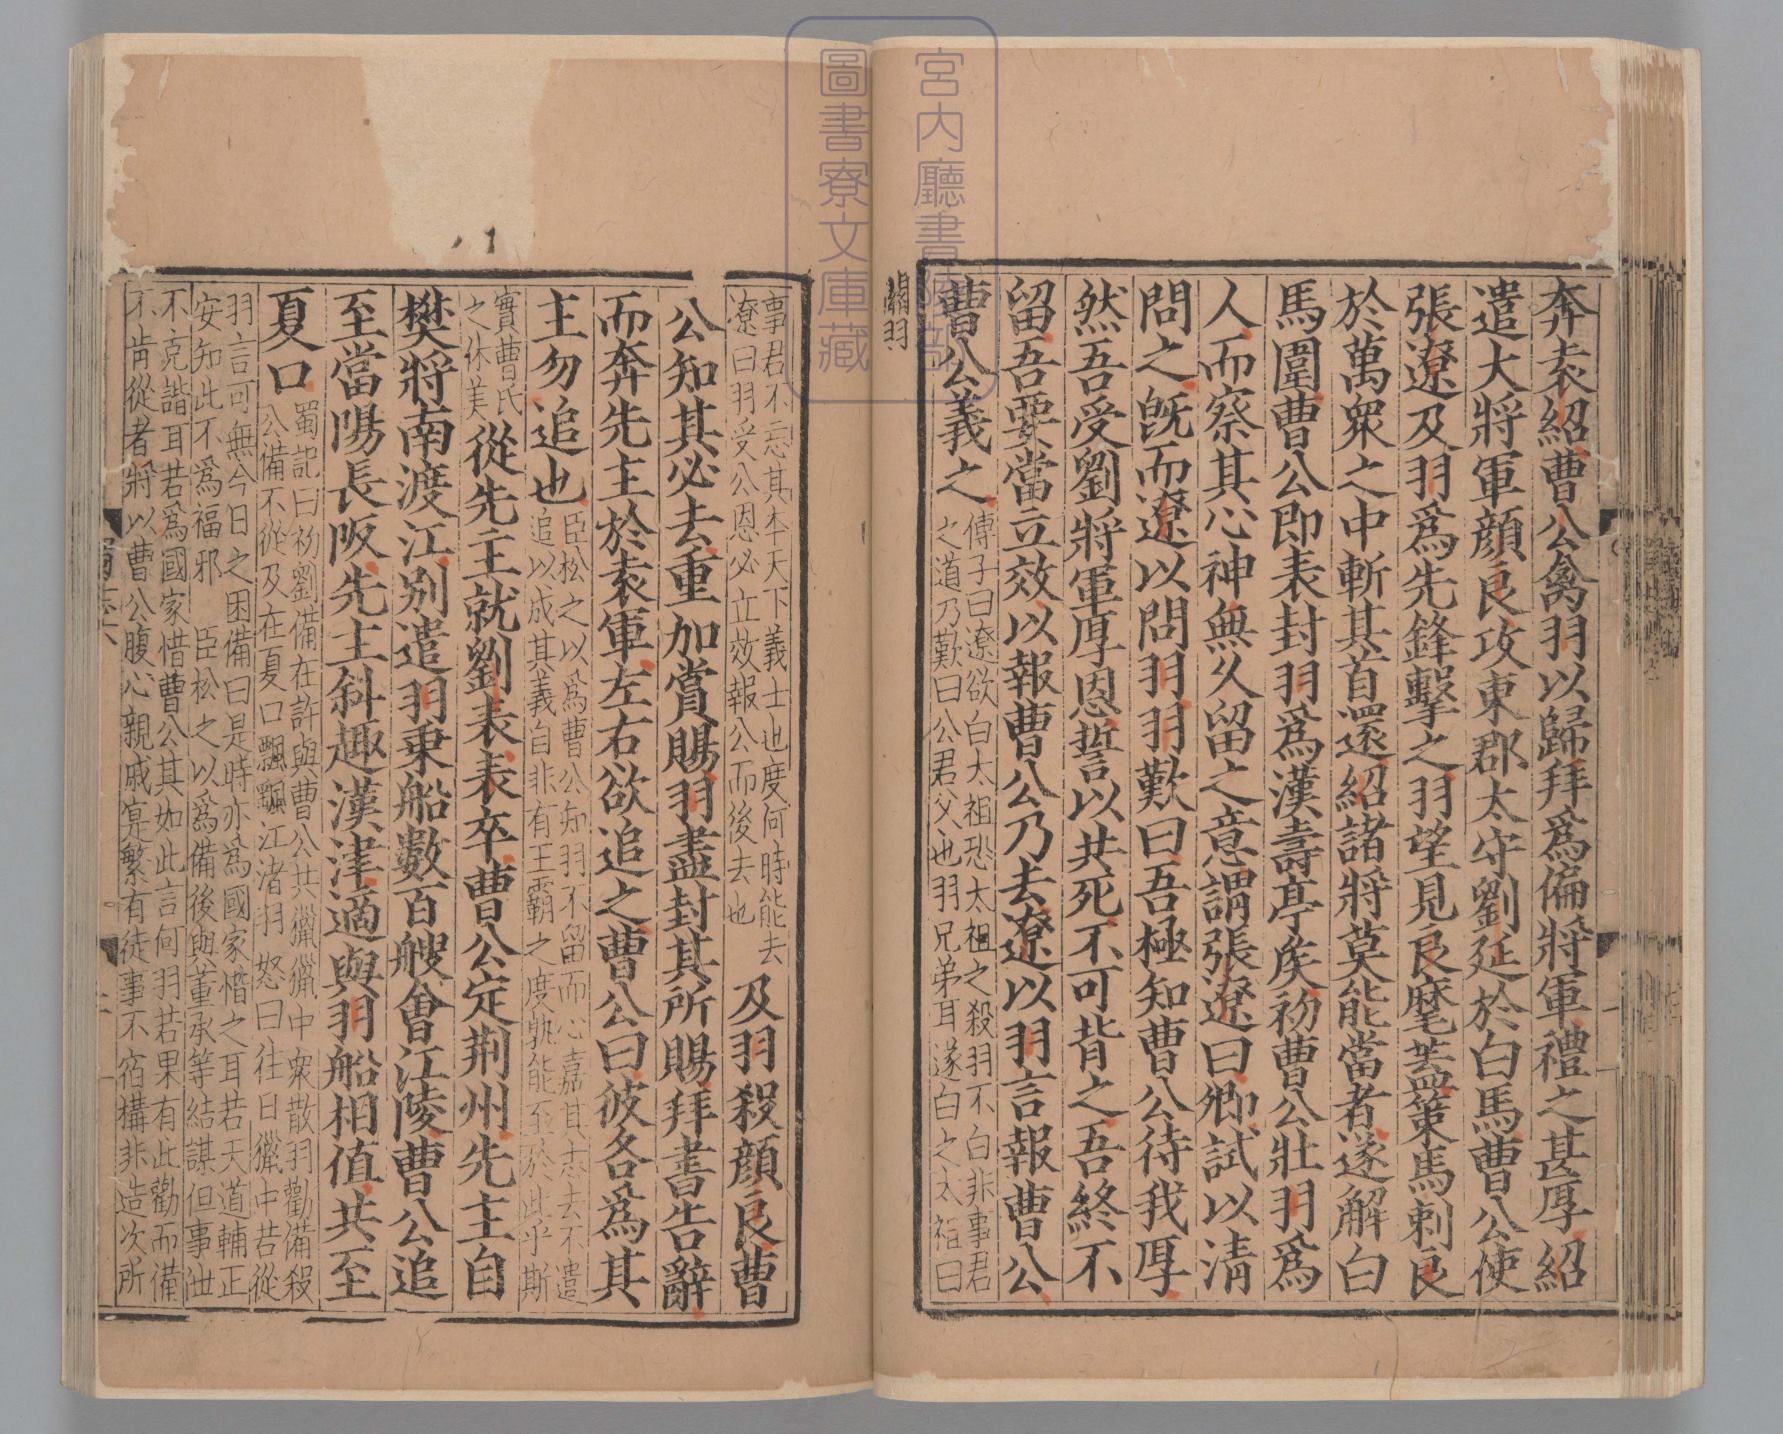 奔袁紹曹公禽羽以歸拜爲偏將軍禮之甚厚紹
遣大將軍顏良攻東郡太守劉延於白馬曹公使
張遼及羽爲先鋒擊之羽望見良麾蓋策馬刺良
於萬衆之中斬其首還紹諸將莫能當者遂解白
馬圍曹公即表封羽爲漢壽亭侯初曹公壯羽爲
人而察其心神無久留之意謂張遼曰卿試以情
問之旣而遼以問羽羽歎曰吾極知曹公待我厚
然吾受劉將軍厚恩誓以共死不可背之吾終不
留吾要當立效以報曹公乃去遼以羽言報曹公
曹公義之
傅子曰遼欲白太祖恐太祖之殺羽不白非事君
之道乃歎曰公君父也羽兄弟耳遂白之太祖曰
關羽
事君不忘其本天下義士也度何時能去
遼曰羽受公恩必立效報公而後去也
及羽殺顏良曹
公知其必去重加賞賜羽盡封其所賜拜書告辭
而奔先主於袁軍左右欲追之曹公曰彼各爲其
主勿追也
臣松之以爲曹公知羽不留而心嘉其志去不遣
追以成其義自非有王霸之度孰能至於此乎斯
實曹氏
之休美
從先主就劉表表卒曹公定荆州先主自
樊將南渡江別遣羽乗船數百艘會江陵曹公追
至當陽長阪先主斜趣漢津適與羽船相值共至
夏口
蜀記曰初劉備在許與曹公共獵獵中衆散羽勸備殺
公備不從及在夏口飄颻江渚羽怒曰往日獵中若從
羽言可無今日之困備曰是時亦爲國家惜之耳若天道輔正
安知此不爲福邪 臣松之以爲備後與董承等結謀但事泄
不克諧耳若爲國家惜曹公其如此言何羽若果有此勸而備
不肯從者將以曹公腹心親戚寔繁有徒事不宿構非造次所
宮内廳書陵部
圖書寮文庫藏